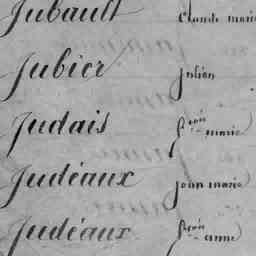 Jubault Claude marie
Jubier Julien
Judais René marie
Judéaux jean marie
Judéaux René anne